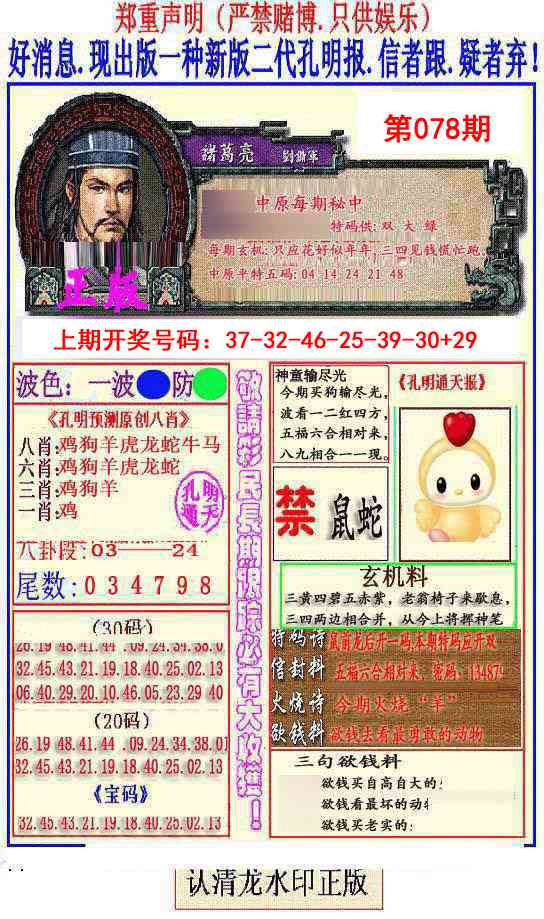 郑重声明（严禁赌博.只供娱乐）
好消息.现出版一种新版二代孔明报.信者跟.疑者弃！
第078期
諸葛亮
中原每期秘中
特码供：双 大 绿
每期玄机：只应花好似年年，三四见钱慌忙跑
中原平特五码：04 14 24 21 48
正版
上期开奖号码：37-32-46-25-39-30+29
波色：一波 防
《孔明预测原创八肖》
八肖:鸡狗羊虎龙蛇牛马
六肖:鸡狗羊虎龙蛇
三肖:鸡狗羊
一肖:鸡
孔明
通天
八卦段：03——24
尾数：0 3 4 7 9 8
(30码)
26.19 48.41.44 .09.24.34.38.0
32.45.43.21.19.18.40.25.02.13
06.40.29.20.10.46.05.23.29.40
(20码)
26.19 48.41.44 .09.24.34.38.01
32.45.43.21.19.18.40.25.02.13
《宝码》
32.45.43.21.19.18.40.25.02.13
敬請彩民長期跟踪必有大收獲！
神童输尽光
今期买狗输尽光，
波看一二红四方，
五福六合相对来，
八九相合一一现。
《孔明通天报》
禁 鼠蛇
玄机料
三黄四碧五赤紫，老翁椅子来歇息，
三四两边相合并，从今上将挥神笔
特码诗 鼠前龙后开一码,本期特码应开双
信封料 五福六合相对来，密码：13487
火烧诗 今期火烧“羊”
欲钱料 欲钱去看最勇敢的动物
三句欲钱料
欲钱买自高自大的：
欲钱看最坏的动
欲钱买老实的：
认清龙水印正版